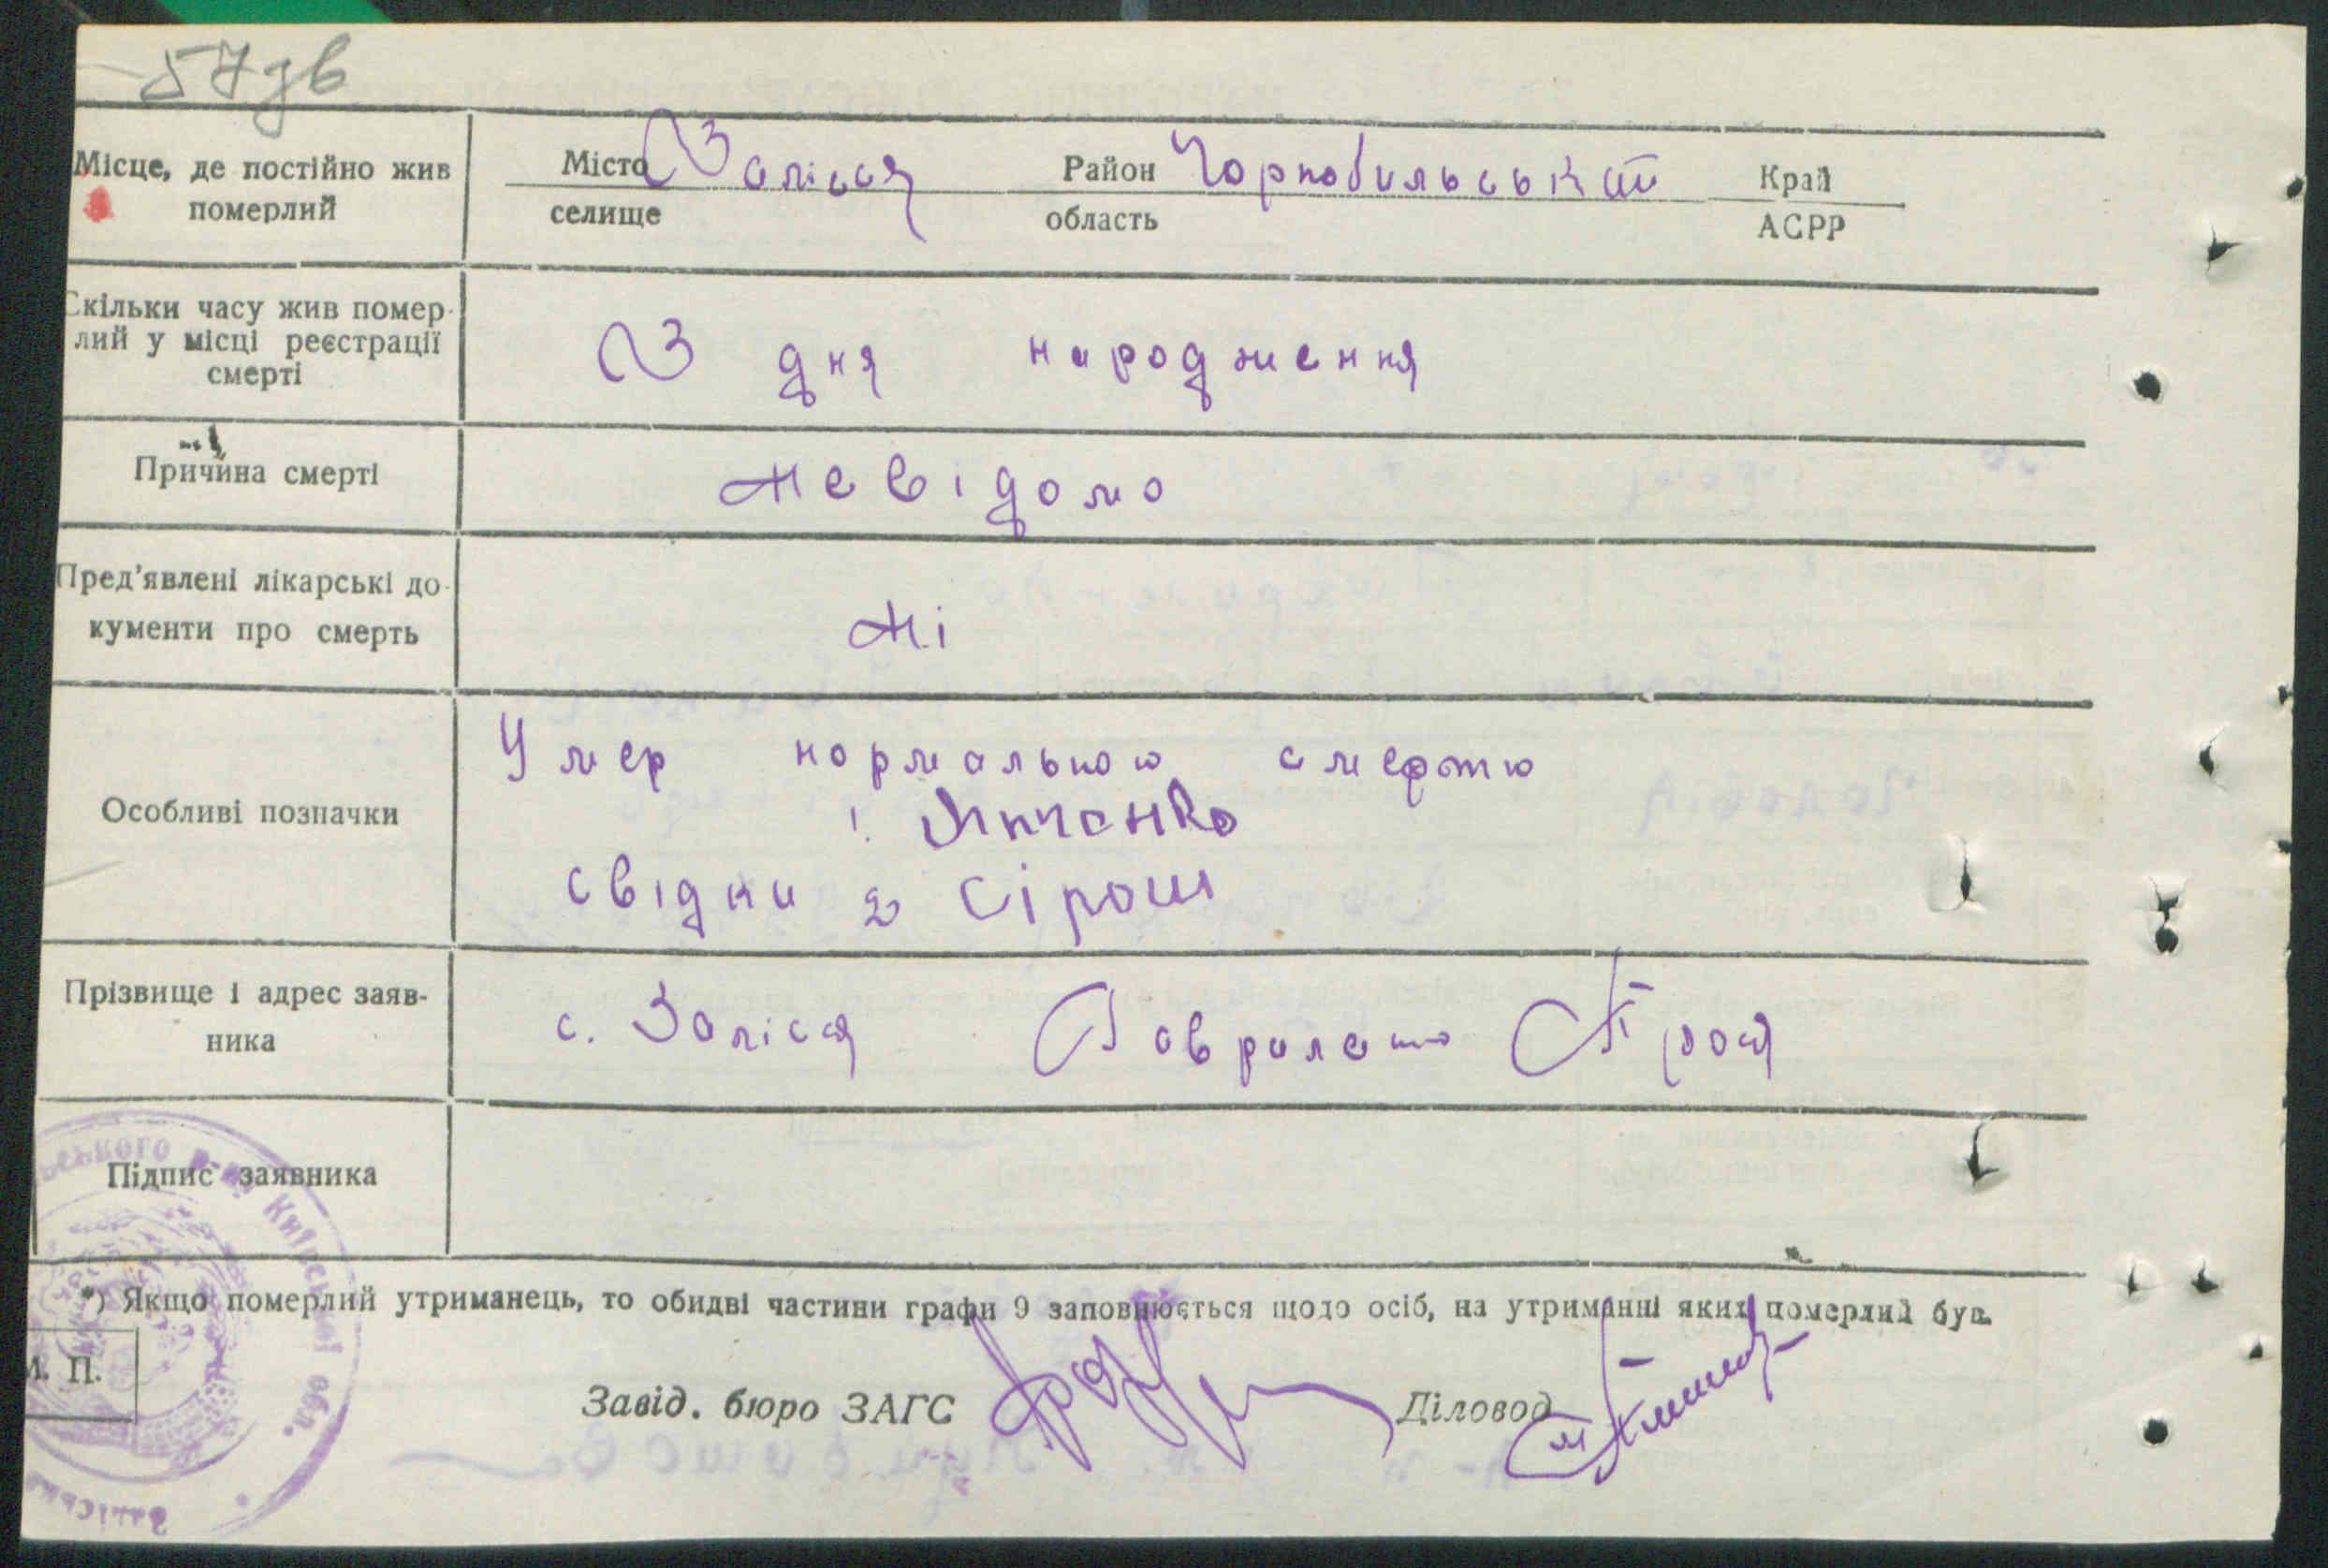 57 зв
Місце, де постійно жив померлий
Місто Залісся Район Чорнобильський Край
селище область АСРР
Скільки часу жив помер-
лий у місці реєстрації
смерті
З дня народження
Причина смерті
невідомо
Пред'явлені лікарські до-
кументи про смерть
ні
Особливі позначки
Умер нормальною смертю
свідки 2 Сірош
Прізвище і адрес заяв-
ника
с. Залісся
Підпис заявника
*) Якщо померлий утриманець, то обидві частини графи 9 заповнюється щодо осіб, на утриманні яких померлий був.
М. П.
Завід. бюро ЗАГС Діловод
Київської обл.